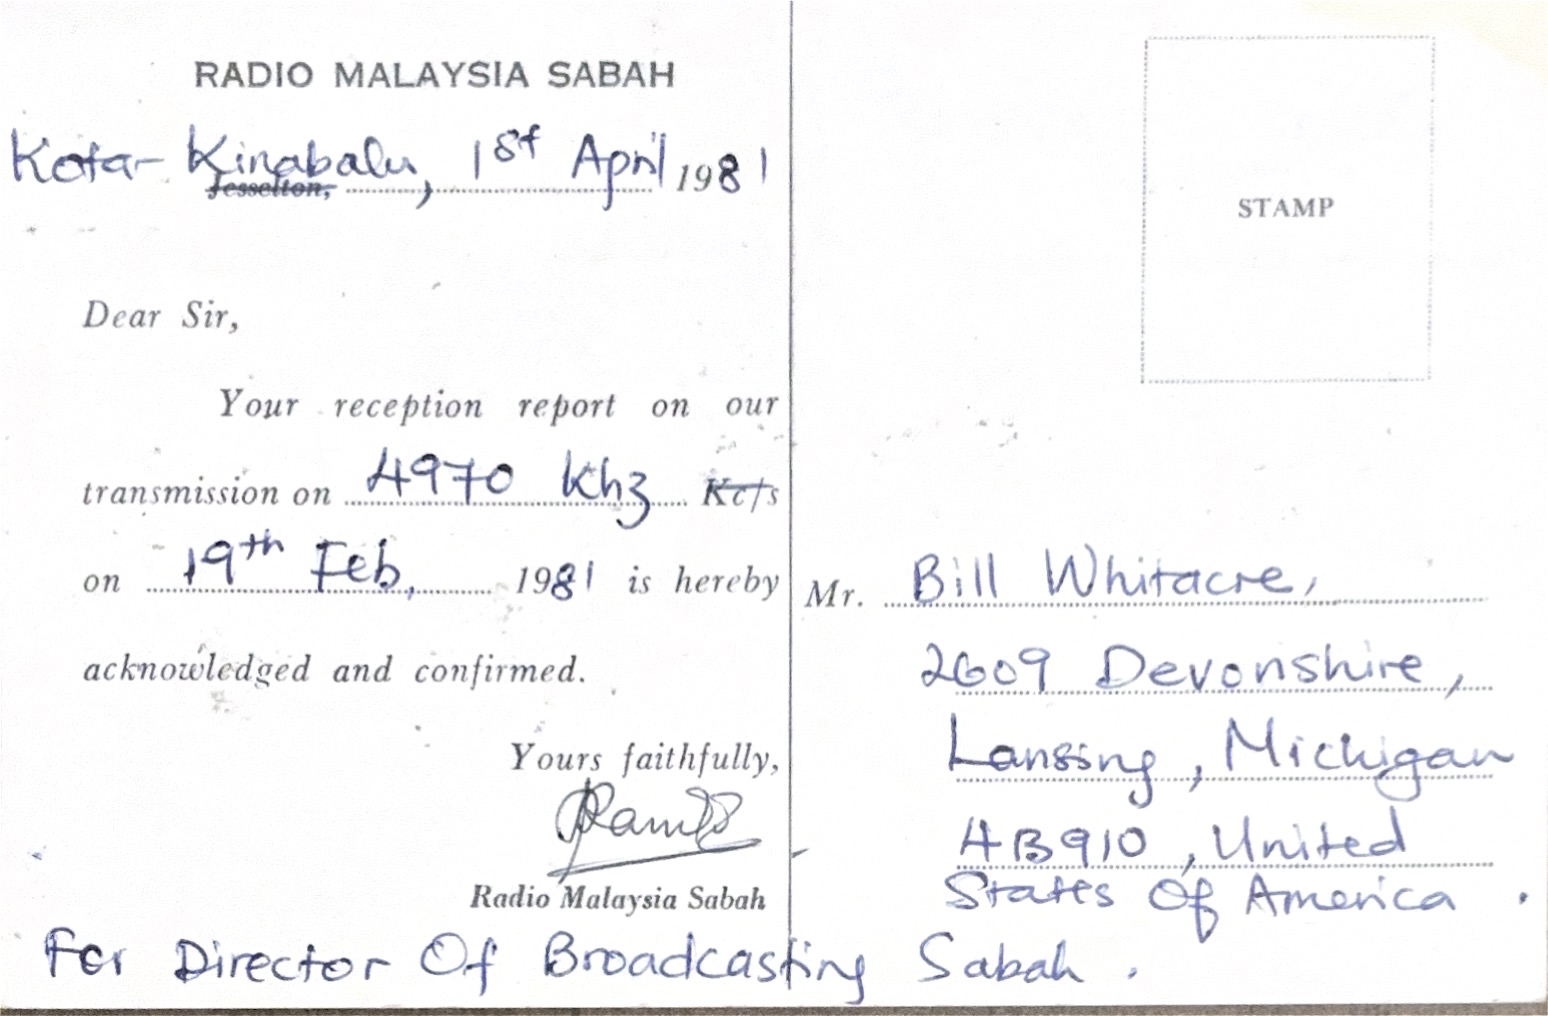 RADIO MALAYSIA SABAH
Kota Kinabalu, 1st April 1981
Jesselton,
Dear Sir,
Your reception report on our
transmission on 4970 Khz Kc/s
on 19th Feb, 1981 is hereby
acknowledged and confirmed.
Yours faithfully,
Radio Malaysia Sabah
For Director Of Broadcasting Sabah.
STAMP
Mr. Bill Whitacre,
2609 Devonshire,
Lansing, Michigan
4B910, United
States Of America.